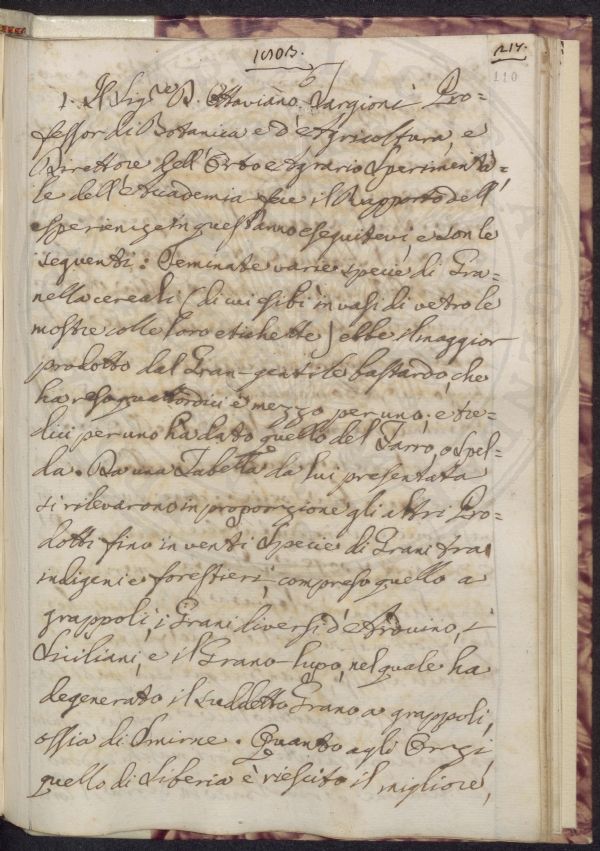 1803.
217.
110
1. Il Sig.re D. Ottaviano Targioni Pro=
fessor di Botanica e d'Agricoltura, e
Direttore dell'Orto Agrario Sperimenta=
le dell'Accademia fece il Rapporto dell'
esperienze in quest'anno eseguitevi, e son le
seguenti: Seminate varie specie di Gra=
nella cereali (di cui esibì in vasi di vetro le
mostre colle loro etichette) ebbe il maggior
prodotto dal Gran-gentile bastardo, che
ha reso quattordici e mezzo per uno; e tre=
dici per uno ha dato quello del Farro, o Spel=
da. Da una Tabella da lui presentata
si rilevarono in proporzione gli altri Pro=
dotti fino in venti Specie di Grani tra
indigeni e forestieri, compreso quello a
grappoli, i Grani diversi d'Arduino, i
Siciliani, e il Grano-lupo, nel quale ha
degenerato il suddetto Grano a grappoli,
ossia di Smirne. Quanto agli Orzi,
quello di Siberia è riescito il migliore,